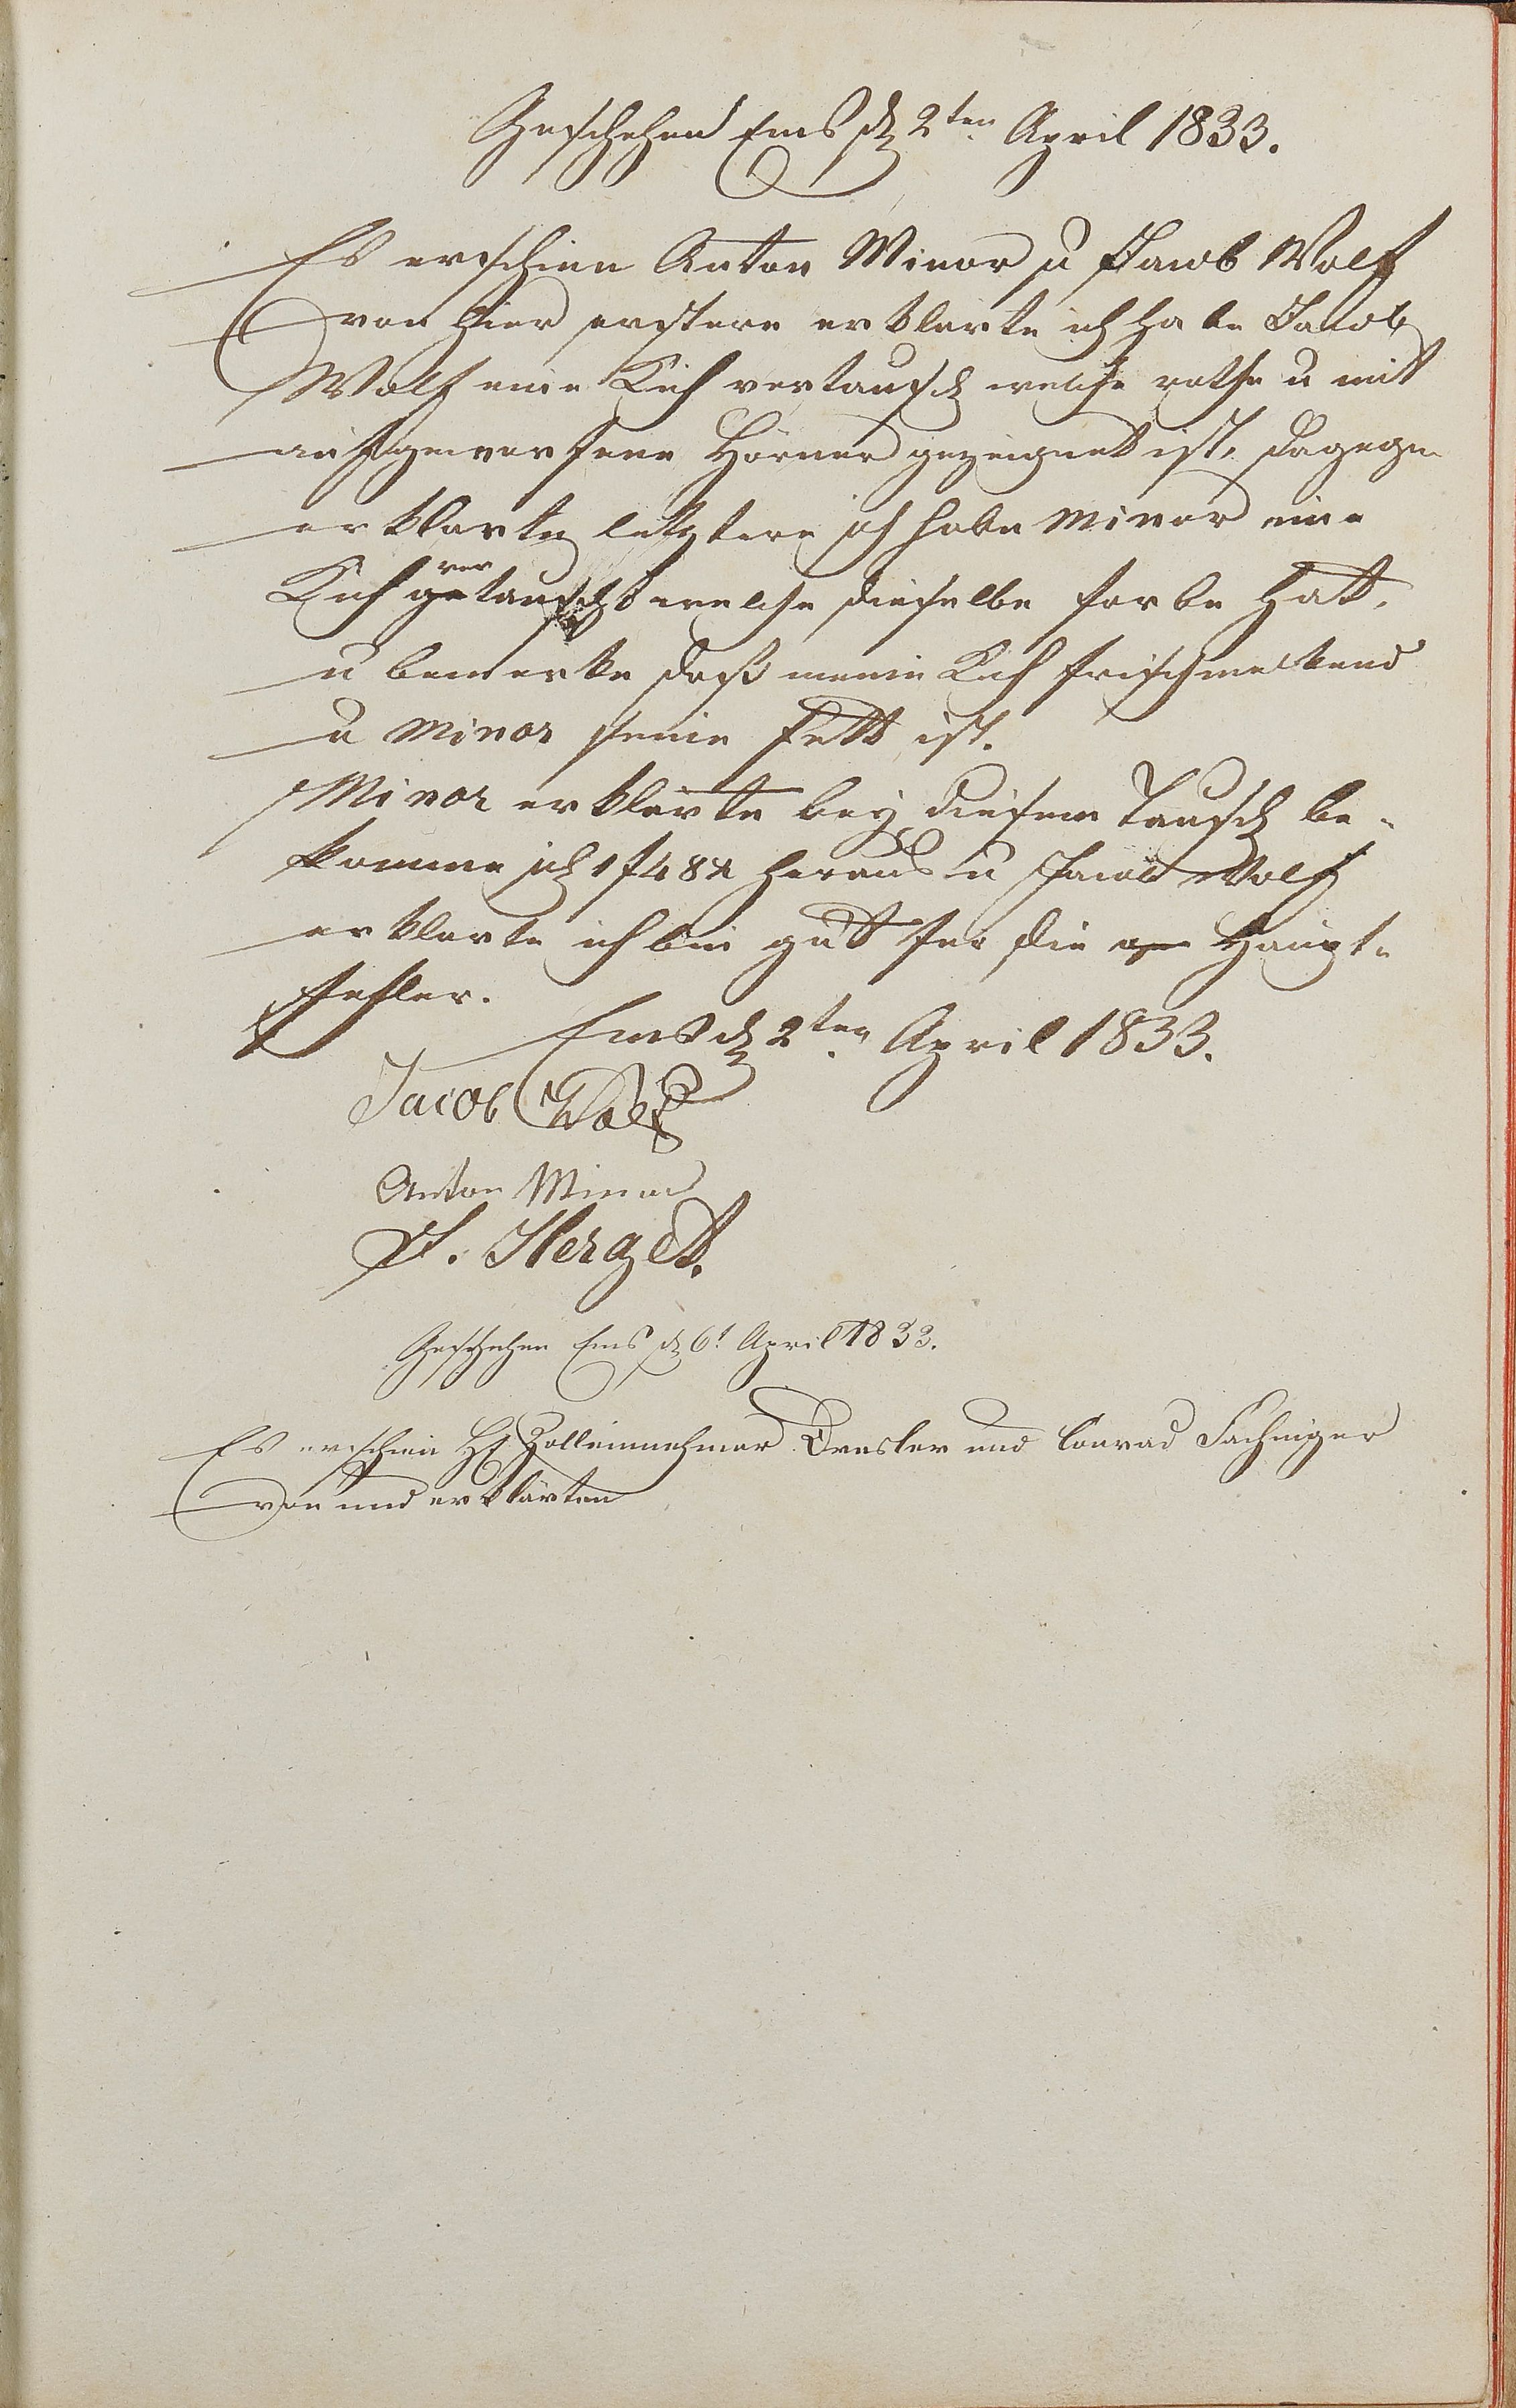 Geschehen Ems d 2ten April 1833.
Es erschien Anton Minor u Jacob Wolf
von hier erstere erklarte ich habe Jacob
Wolf eine Kuh vertausch welche rothe u mit
aufgeworfene Hörner gezeignet ist, dagegen
erklarte letztere ich habe Minor eine
Kuh vertauscht welche dieselbe farbe hatt,
u bemerke daß meine Kuh frischmelkend
u Minor seine fett ist.
Minor erklärte bey diesem Tausch be-
komme ich 1 f 48 x heraus u Jacob Wolf
erklarte ich bin gut for die Haupt-
fehler.
Ems d 2ten April 1833.
Jacob Wolf
Anton Minor
J. Herget.
Geschehen Ems d 6t April 1833.
Es erschien H Zolleinnehmer Dresler und Conrad Fachinger
von und erklärten